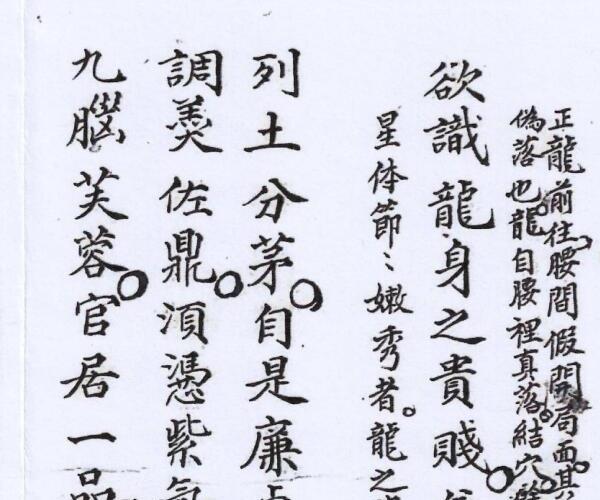 正龍前往腰間假開局面其
偽落也龍自腰裡真落結穴
欲識龍身之貴賤
星体節〻嫩秀者。龍之
列土分茅。自是廉
調羹佐鼎。須憑紫氣
九腦芙蓉。官居一品